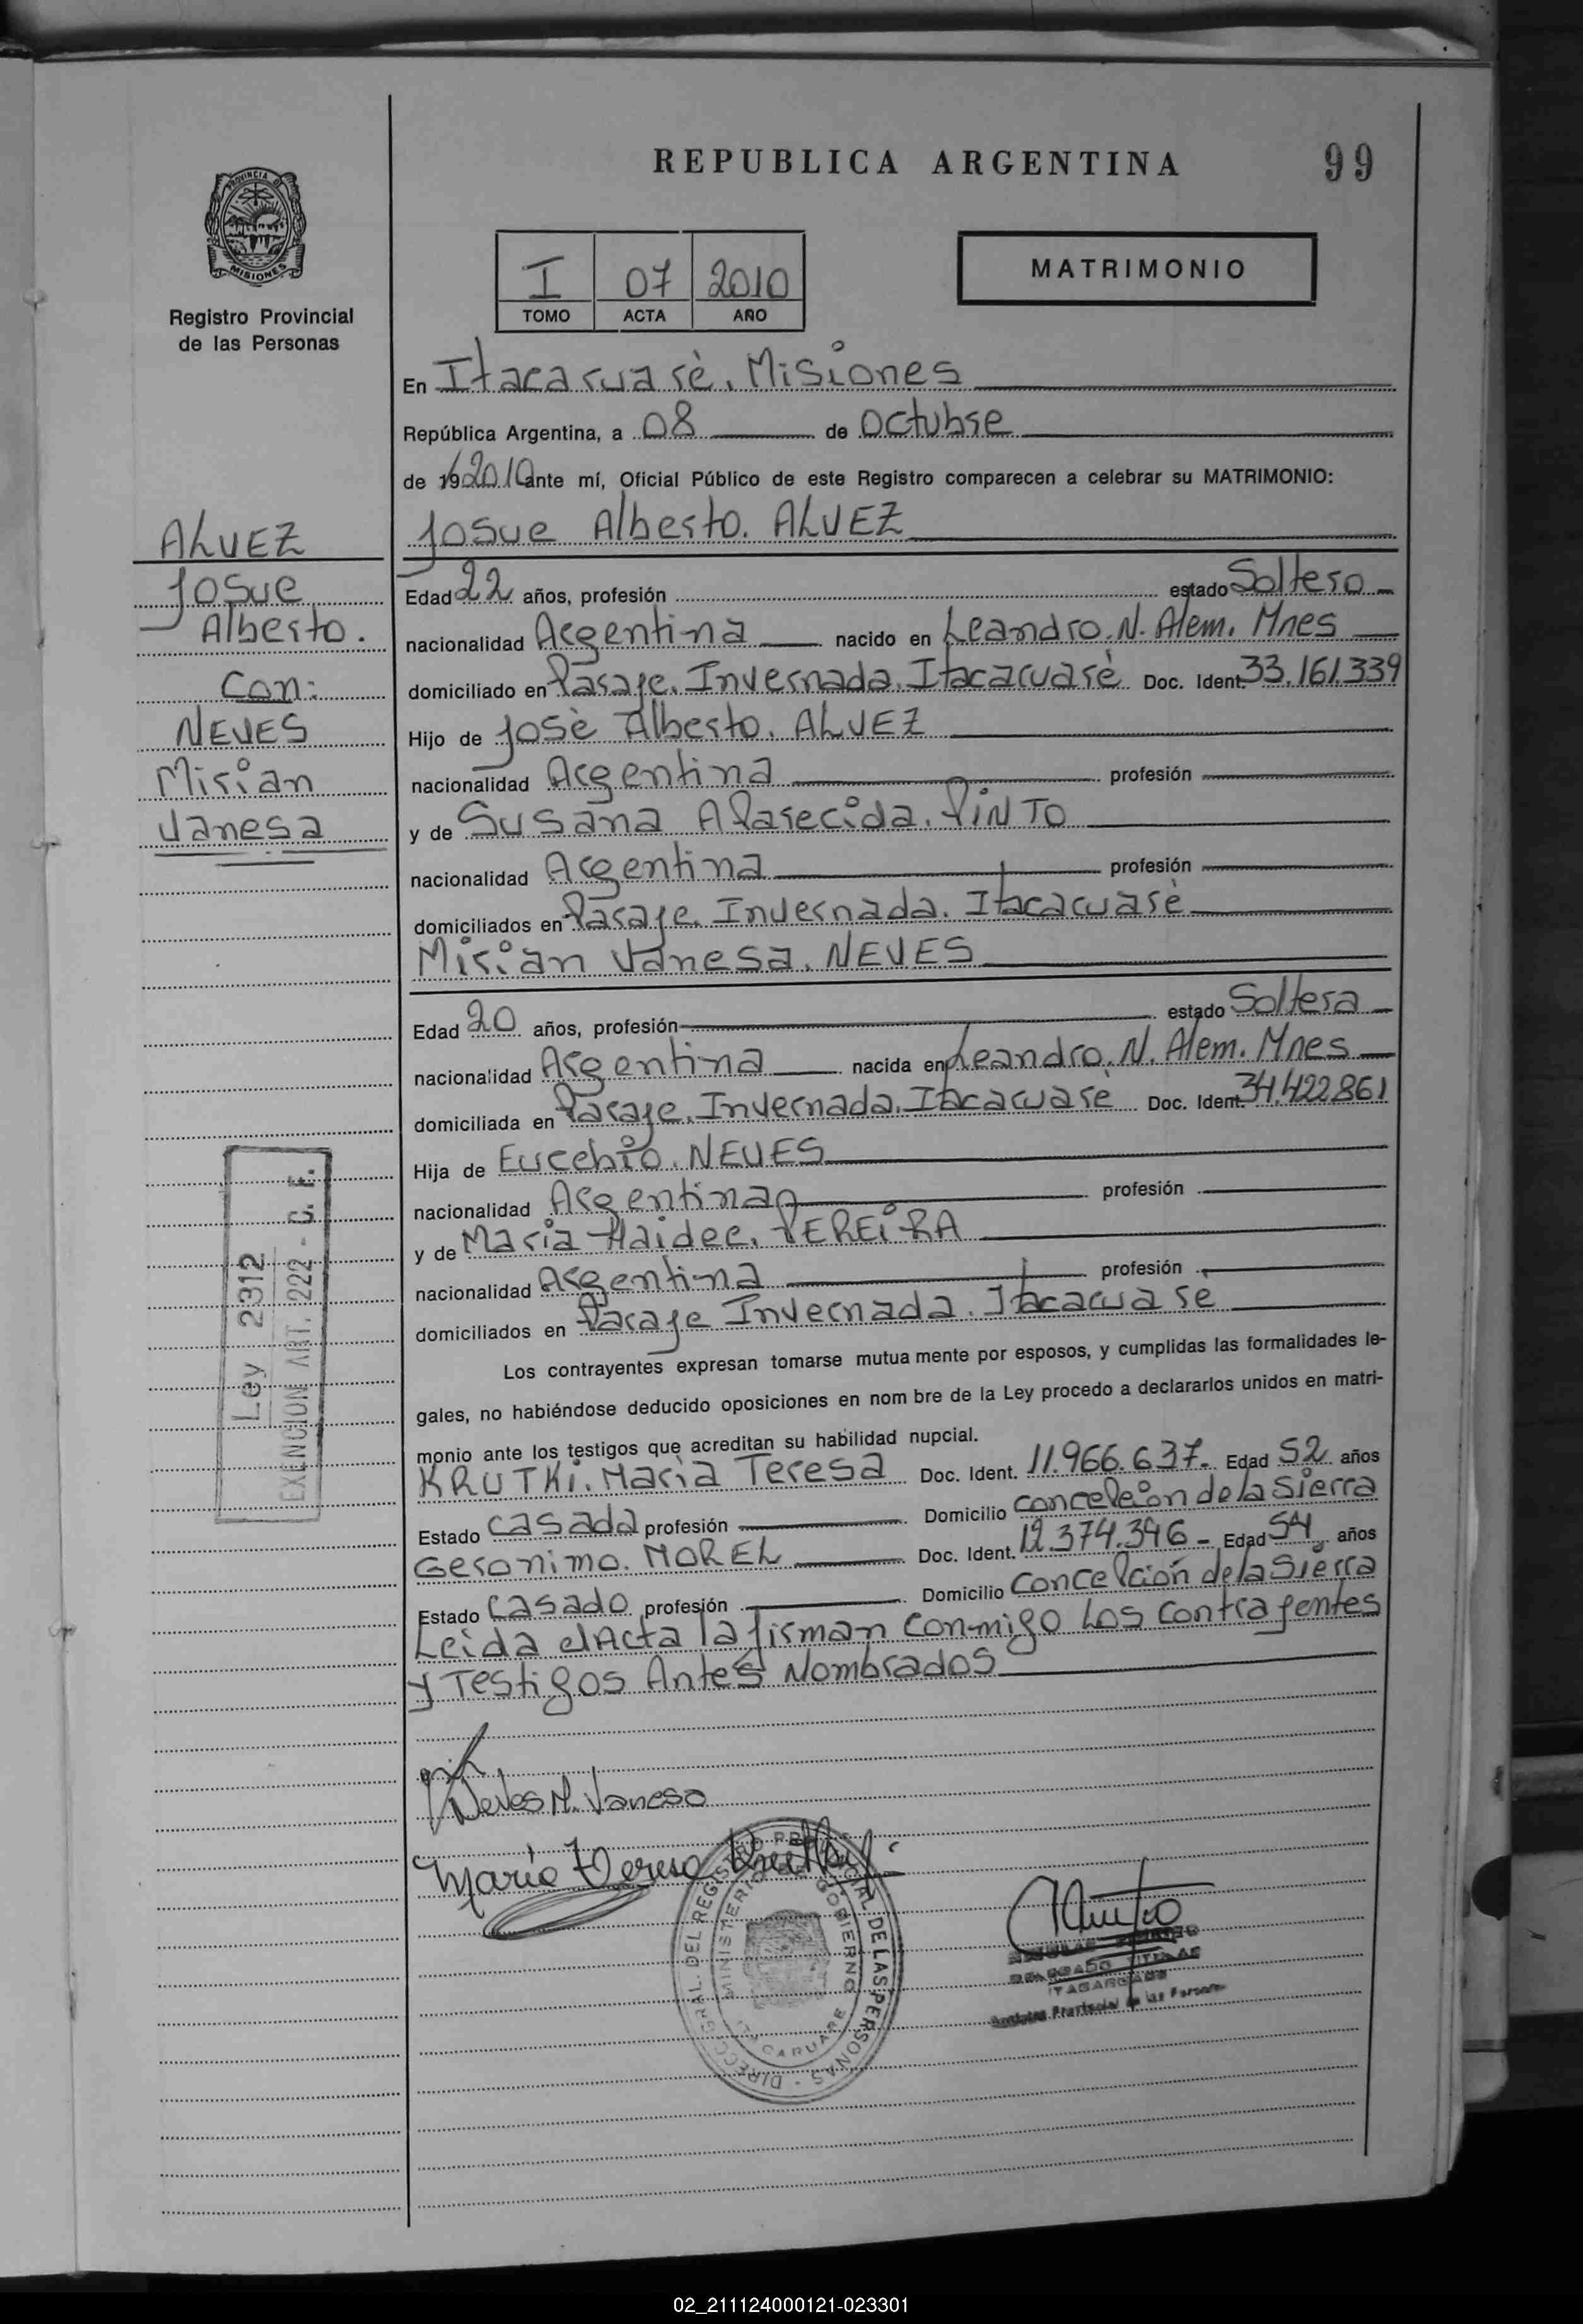 REPUBLICA ARGENTINA
99
PROVINCIA DE
MISIONES
Registro Provincial
de las Personas
I 07 2010
TOMO ACTA AÑO
MATRIMONIO
En Itacaruaré, Misiones
República Argentina, a 08 de Octubre
de 19 2010 ante mí, Oficial Público de este Registro comparecen a celebrar su MATRIMONIO:
Josue Alberto. ALVEZ
ALVEZ
Josue
Alberto.
Con:
NEVES
Mirian
Vanesa
Edad 22 años, profesión estado Soltero
nacionalidad Argentina nacido en Leandro. N. Alem. Mnes
domiciliado en Paraje. Invernada. Itacaruaré Doc. Ident. 33.161.339
Hijo de José Alberto. ALVEZ
nacionalidad Argentina profesión
y de Susana Aparecida. PINTO
nacionalidad Argentina profesión
domiciliados en Paraje. Invernada. Itacaruaré
Mirian Vanesa. NEVES
Edad 20 años, profesión estado Soltera
nacionalidad Argentina nacida en Leandro. N. Alem. Mnes
domiciliada en Paraje. Invernada. Itacaruaré Doc. Ident. 34.422.861
Hija de Eucebio. NEVES
nacionalidad Argentina profesión
y de Maria Haidee. PEREIRA
nacionalidad Argentina profesión
domiciliados en Paraje Invernada. Itacaruaré
Ley 2312
EXENCION ART. 222 - C. F.
Los contrayentes expresan tomarse mutua mente por esposos, y cumplidas las formalidades le-
gales, no habiéndose deducido oposiciones en nom bre de la Ley procedo a declararlos unidos en matri-
monio ante los testigos que acreditan su habilidad nupcial.
KRUTKI. Maria Teresa Doc. Ident. 11.966.637.- Edad 52 años
Estado Casada profesión Domicilio Concepción de la Sierra
Geronimo. MOREL Doc. Ident. 12.374.396 - Edad 54 años
Estado Casado profesión Domicilio Concepción de la Sierra
Leida el Acta la firman conmigo Los Contrayentes
y Testigos Antes Nombrados
Neves M. Vanesa
Maria Teresa Krutki
DIRECC. GRAL. DEL REGISTRO PROVINCIAL DE LAS PERSONAS
MINISTERIO DE GOBIERNO
ITACARUARE
DELEGADO TITULAR
ITACARUARE
Registro Provincial de las Personas
02_211124000121-023301